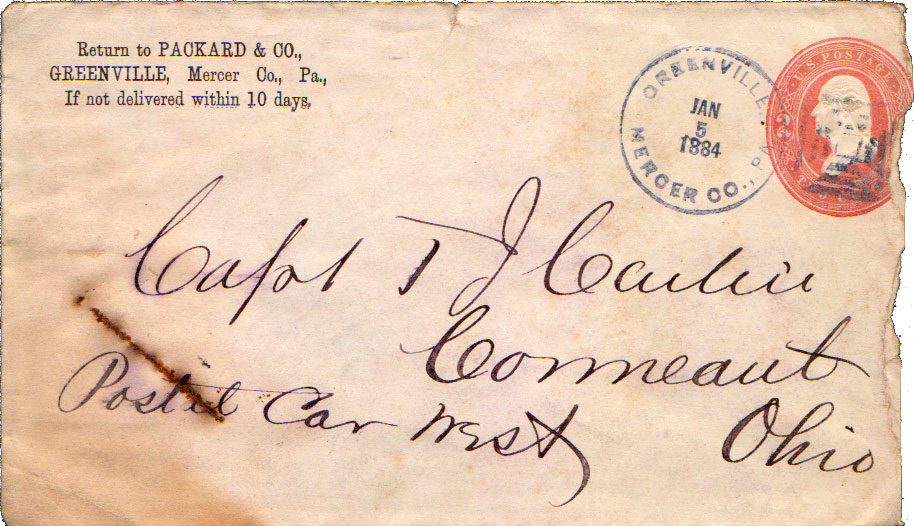 Return to PACKARD & CO.,
GREENVILLE, Mercer Co., Pa.,
If not delivered within 10 days.
GREENVILLE
JAN
5
1884
MERCER CO., PA
U.S. POSTAGE
Capt T J Carlin
Conneaut
Ohio
Car West